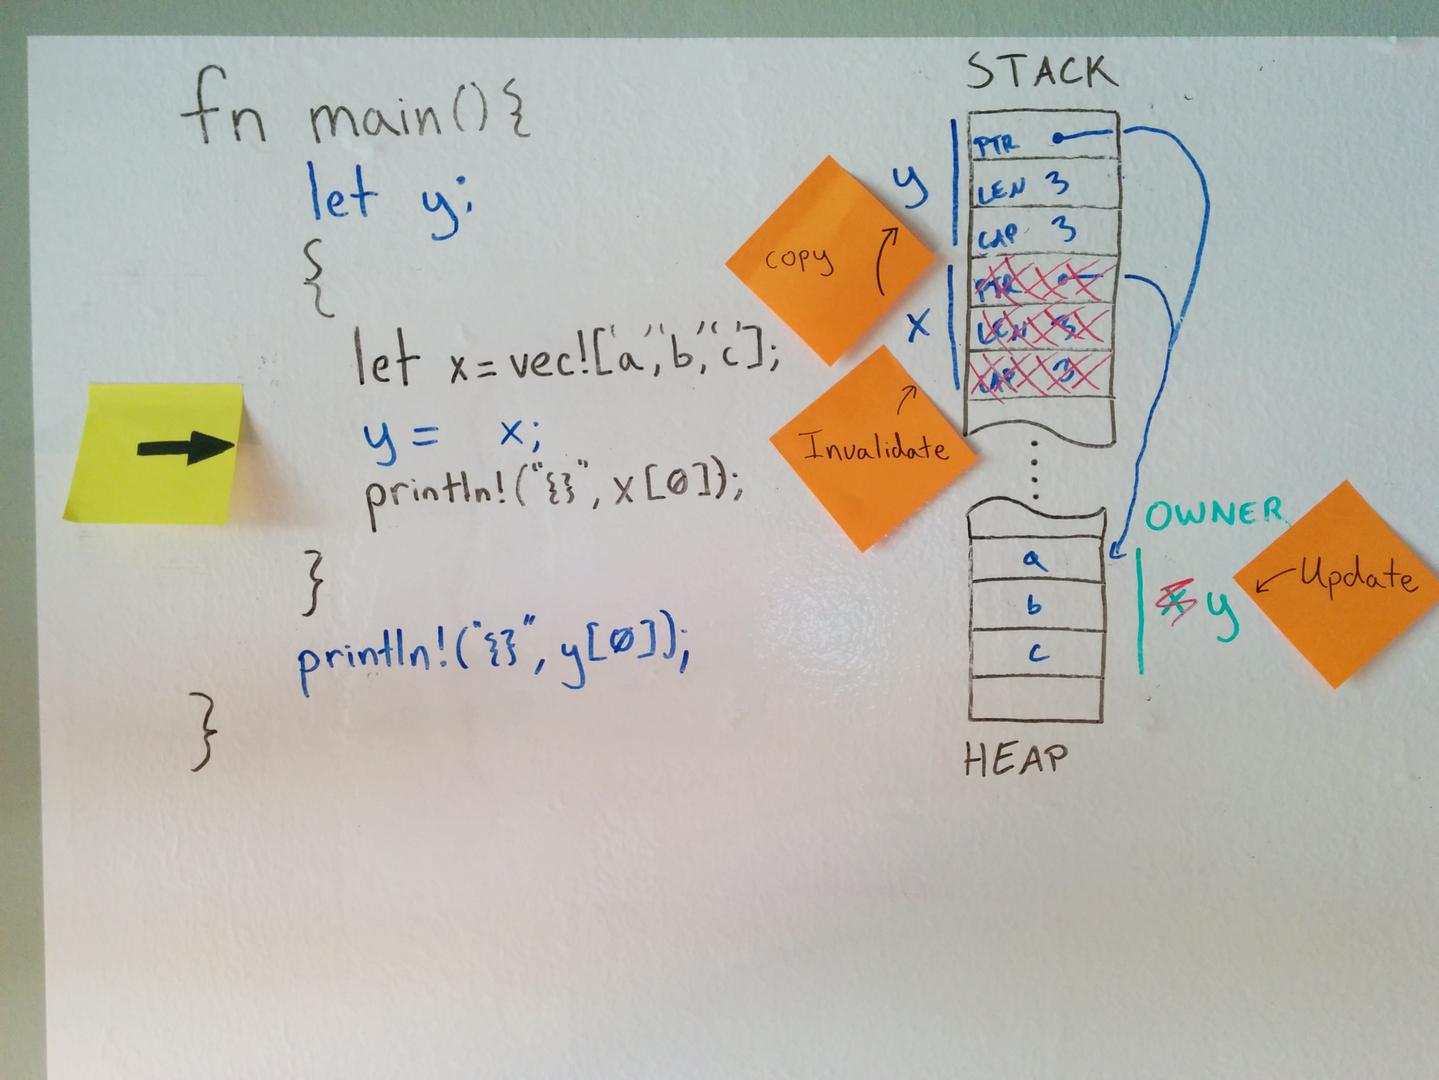 fn main(){
let y;
{
let x = vec!['a','b','c'];
y = x;
println!("{}", x[0]);
}
println!("{}", y[0]);
}
STACK
y
PTR
LEN 3
CAP 3
x
PTR
LEN 3
CAP 3
copy
Invalidate
OWNER
a
b
c
x y
Update
HEAP